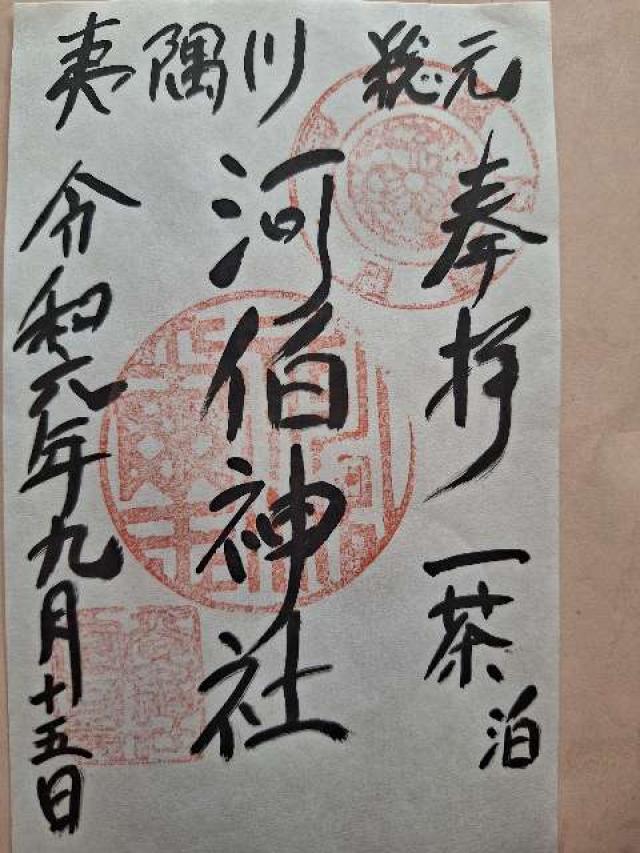 夷隅川 総元
奉拝 一茶泊
河伯神社
令和元年九月十五日